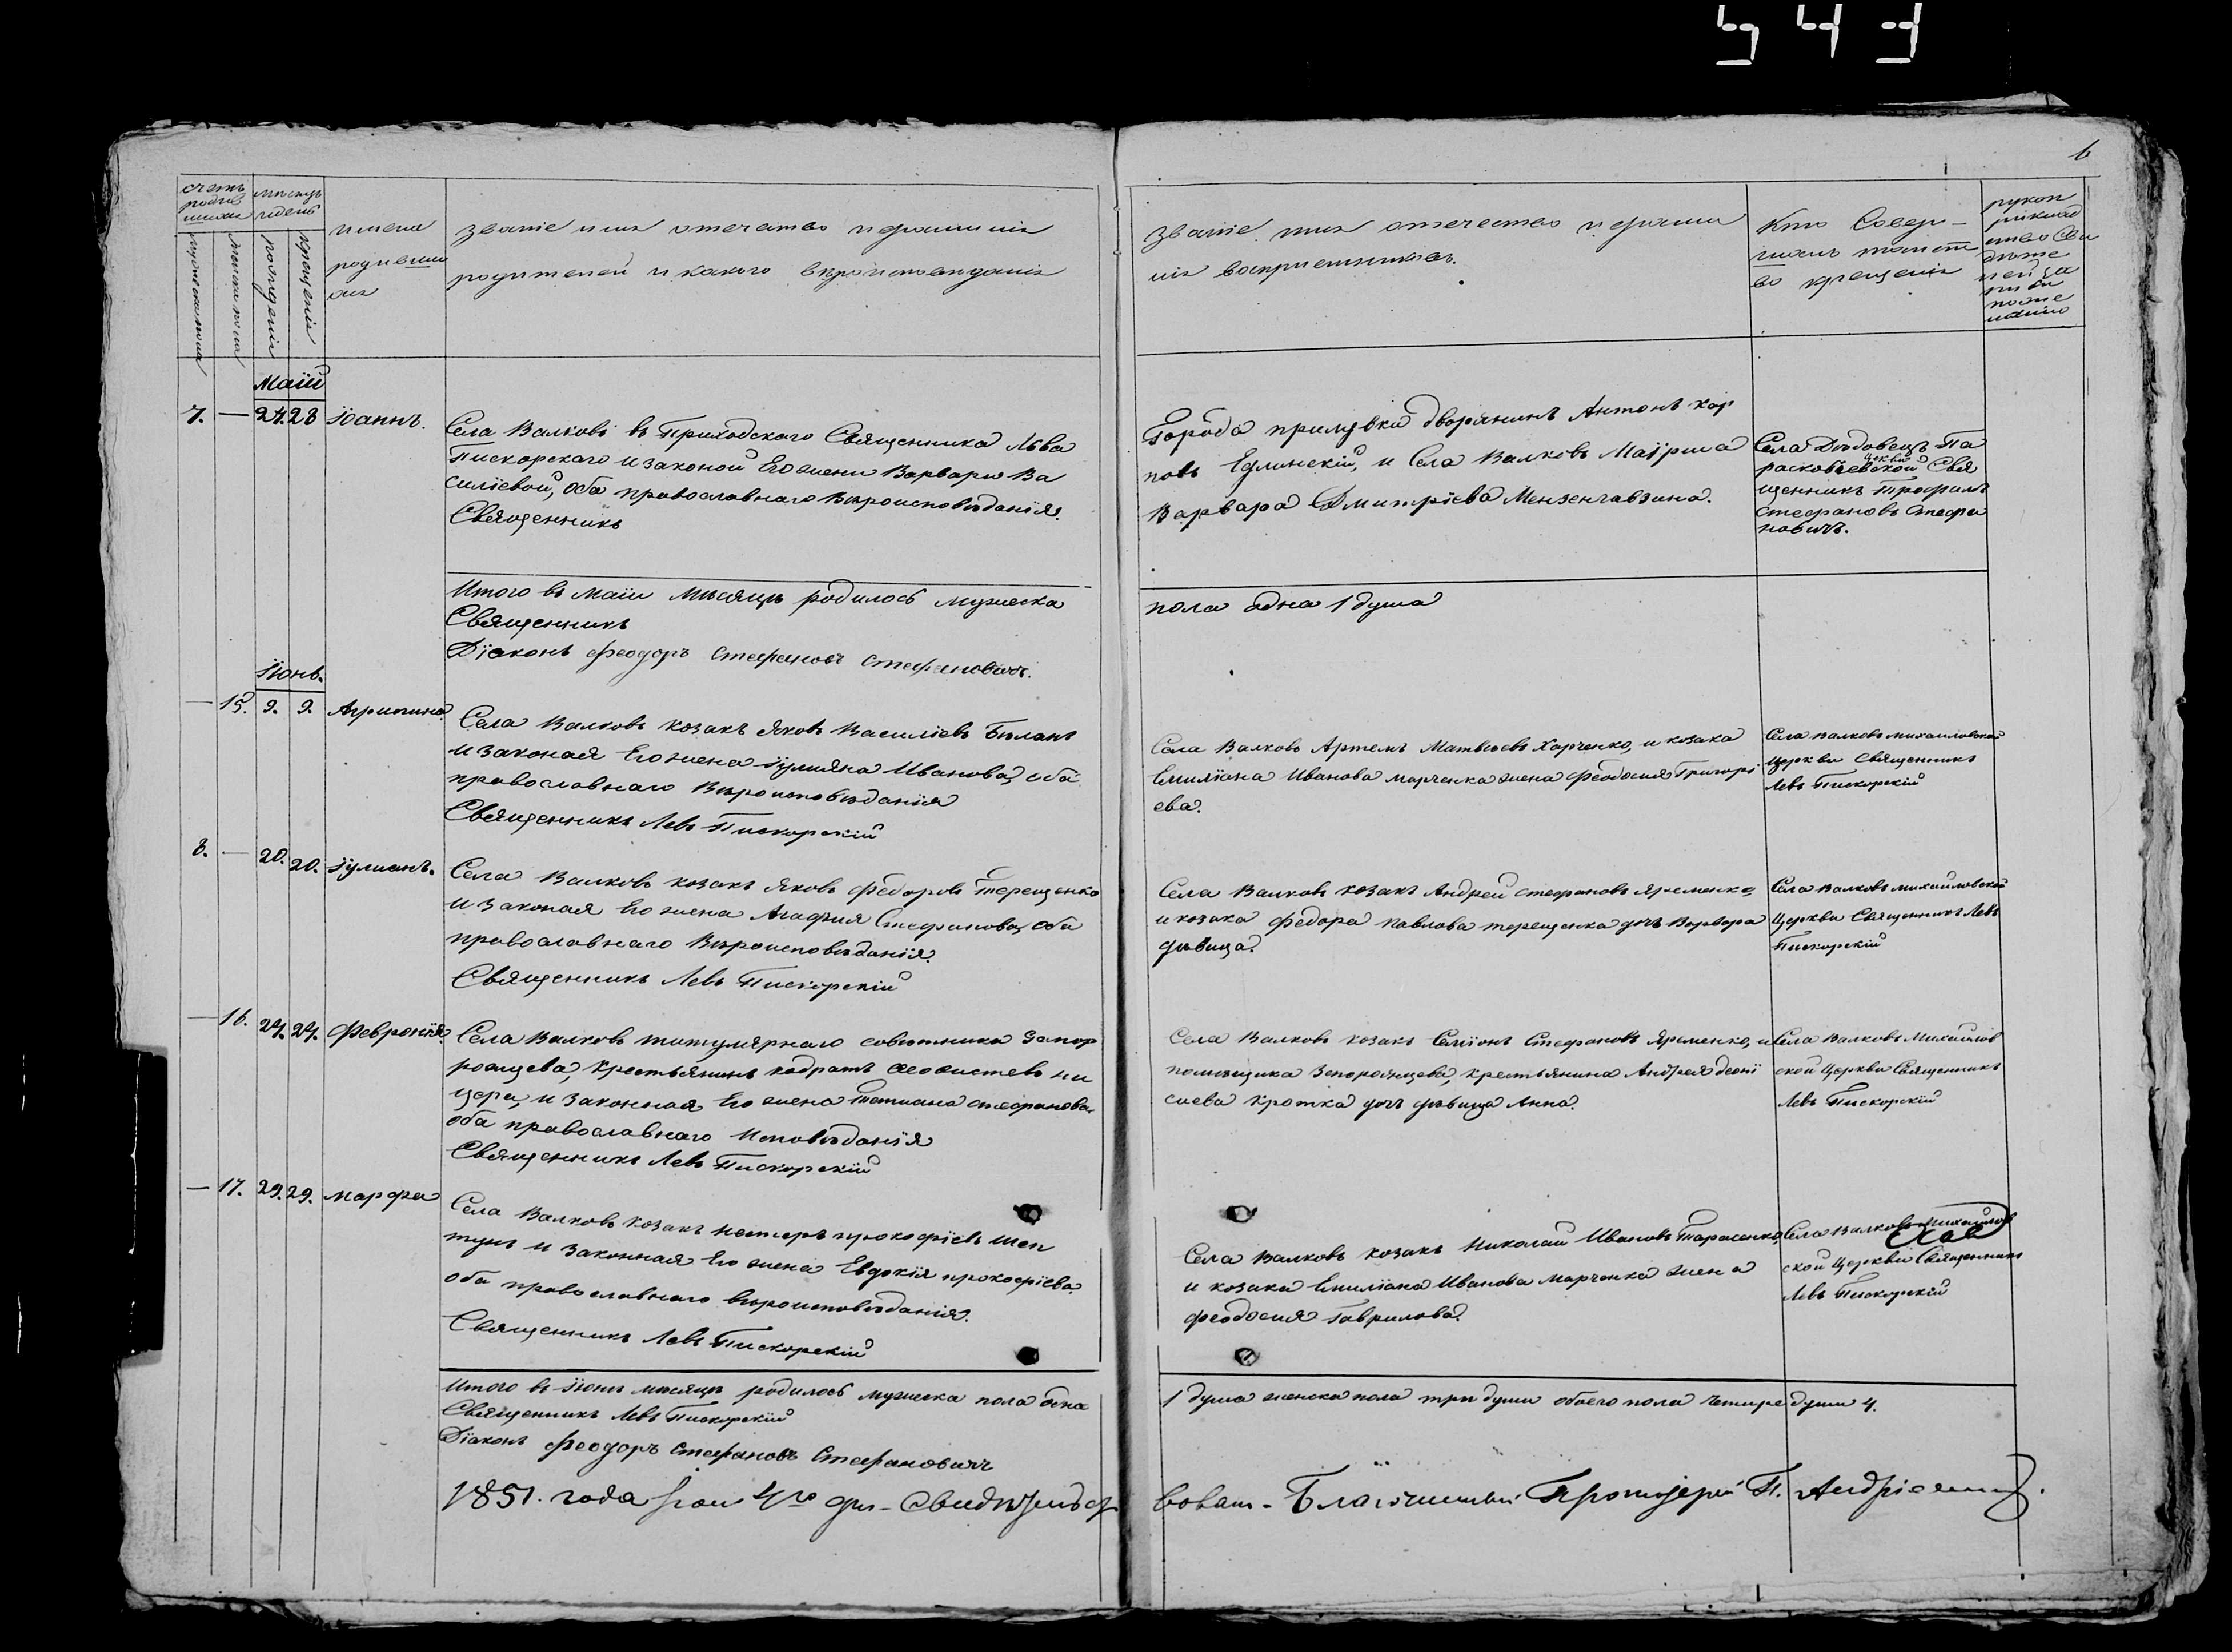 543
6
счетъ родив шихся
мѣсяцъ и день
мужеска пола
женска пола
рожденія
крещенія
имена родившихся
званіе имя отечество и фамилія
родителей и какого вѣроисповѣданія
званіе имя отечество и фамилія
воспріемниковъ.
Кто Совер-
шалъ таинст
во крещенія
рукоприкладство Свидѣтелей
Маій
7. — 27. 28 Іоаннъ.
Села Валковъ въ Приходского Священника Льва
Пискорскаго и законой Его жени Варвари Ва
силіевой, оба православнаго Вѣроисповѣданія.
Священникъ
Города прилуки дворянинъ Антонъ Кар
повъ Едлинскій, и Села Валковъ Маіорша
Варвара Дмитріева
Села Дѣдовецъ Па
расковѣевской церкви Свя
щенникъ Трофимъ
Стефановъ Стефа
новичъ.
Итого въ Маіи Мѣсяцѣ родилось мужеска
пола одна 1 душа
Священникъ
Діаконъ Феодоръ Стефановъ Стефановичъ.
Іюнь.
— 15. 9. 9. Агрипина
Села Валковъ козакъ Яковъ Василіевъ Биланъ
и законая Его жена Іулияна Иванова, оба
православнаго Вѣроисповѣданія
Священникъ Левъ Пискорскій
Села Валковъ Артемъ Матвѣевъ Харченко, и козака
Емиліана Иванова марченка жена Феодосия Григорі
ева.
Села Валковъ Михаиловской
Церкви Священникъ
Левъ Пискорскій
8. — 20. 20. Іулианъ.
Села Валковъ козакъ Яковъ Федоровъ Терещенко
и законая Его жена Агафия Стефанова, оба
православнаго Вѣроисповѣданія.
Священникъ Левъ Пискорскій
Села Валковъ козакъ Андрей Стефановъ Яременко,
и козака Федора Павлова терещенка дочь Варвара
дѣвица.
Села Валковъ Михаиловской
Церкви Священникъ Левъ
Пискорскій
— 16. 24. 24. Февронія.
Села Валковъ титулярнаго совѣтника Запор
рожцева, Крестьянинъ кодратъ
и законная Его жена Татиана Стефанова
оба православнаго Исповѣданія
Священникъ Левъ Пискорскій
Села Валковъ козакъ Семіонъ Стефановъ Яременко, и
помѣщика Запорожцева, крестьянина Андрея Деоні
сиева Кротка дочь дѣвица Анна.
Села Валковъ Михаилов
ской Церкви Священникъ
Левъ Пискорскій
— 17. 29. 29. Марфа
Села Валковъ козакъ Несторъ прокофіевъ Шеп
тунъ и законная Его жена Евдокія прокофіева
оба православнаго вѣроисповѣданія.
Священникъ Левъ Пискорскій
Села Валковъ козакъ Николай Ивановъ Тарасенко,
и козака Емиліана Иванова Марченка жена
Феодосия Гаврилова.
Села Валковъ Михаилов
ской Церкви Священникъ
Левъ Пискорскій
Итого въ Іюнѣ мѣсяцѣ родилось мужеска пола одна
1 душа женска пола три души обоего пола четыре души 4.
Священникъ Левъ Пискорскій
Діаконъ Феодоръ Стефановъ Стефановичъ
1851. года 4го дня Свидѣтельст
вовалъ - Благочинный Протоіерей П.